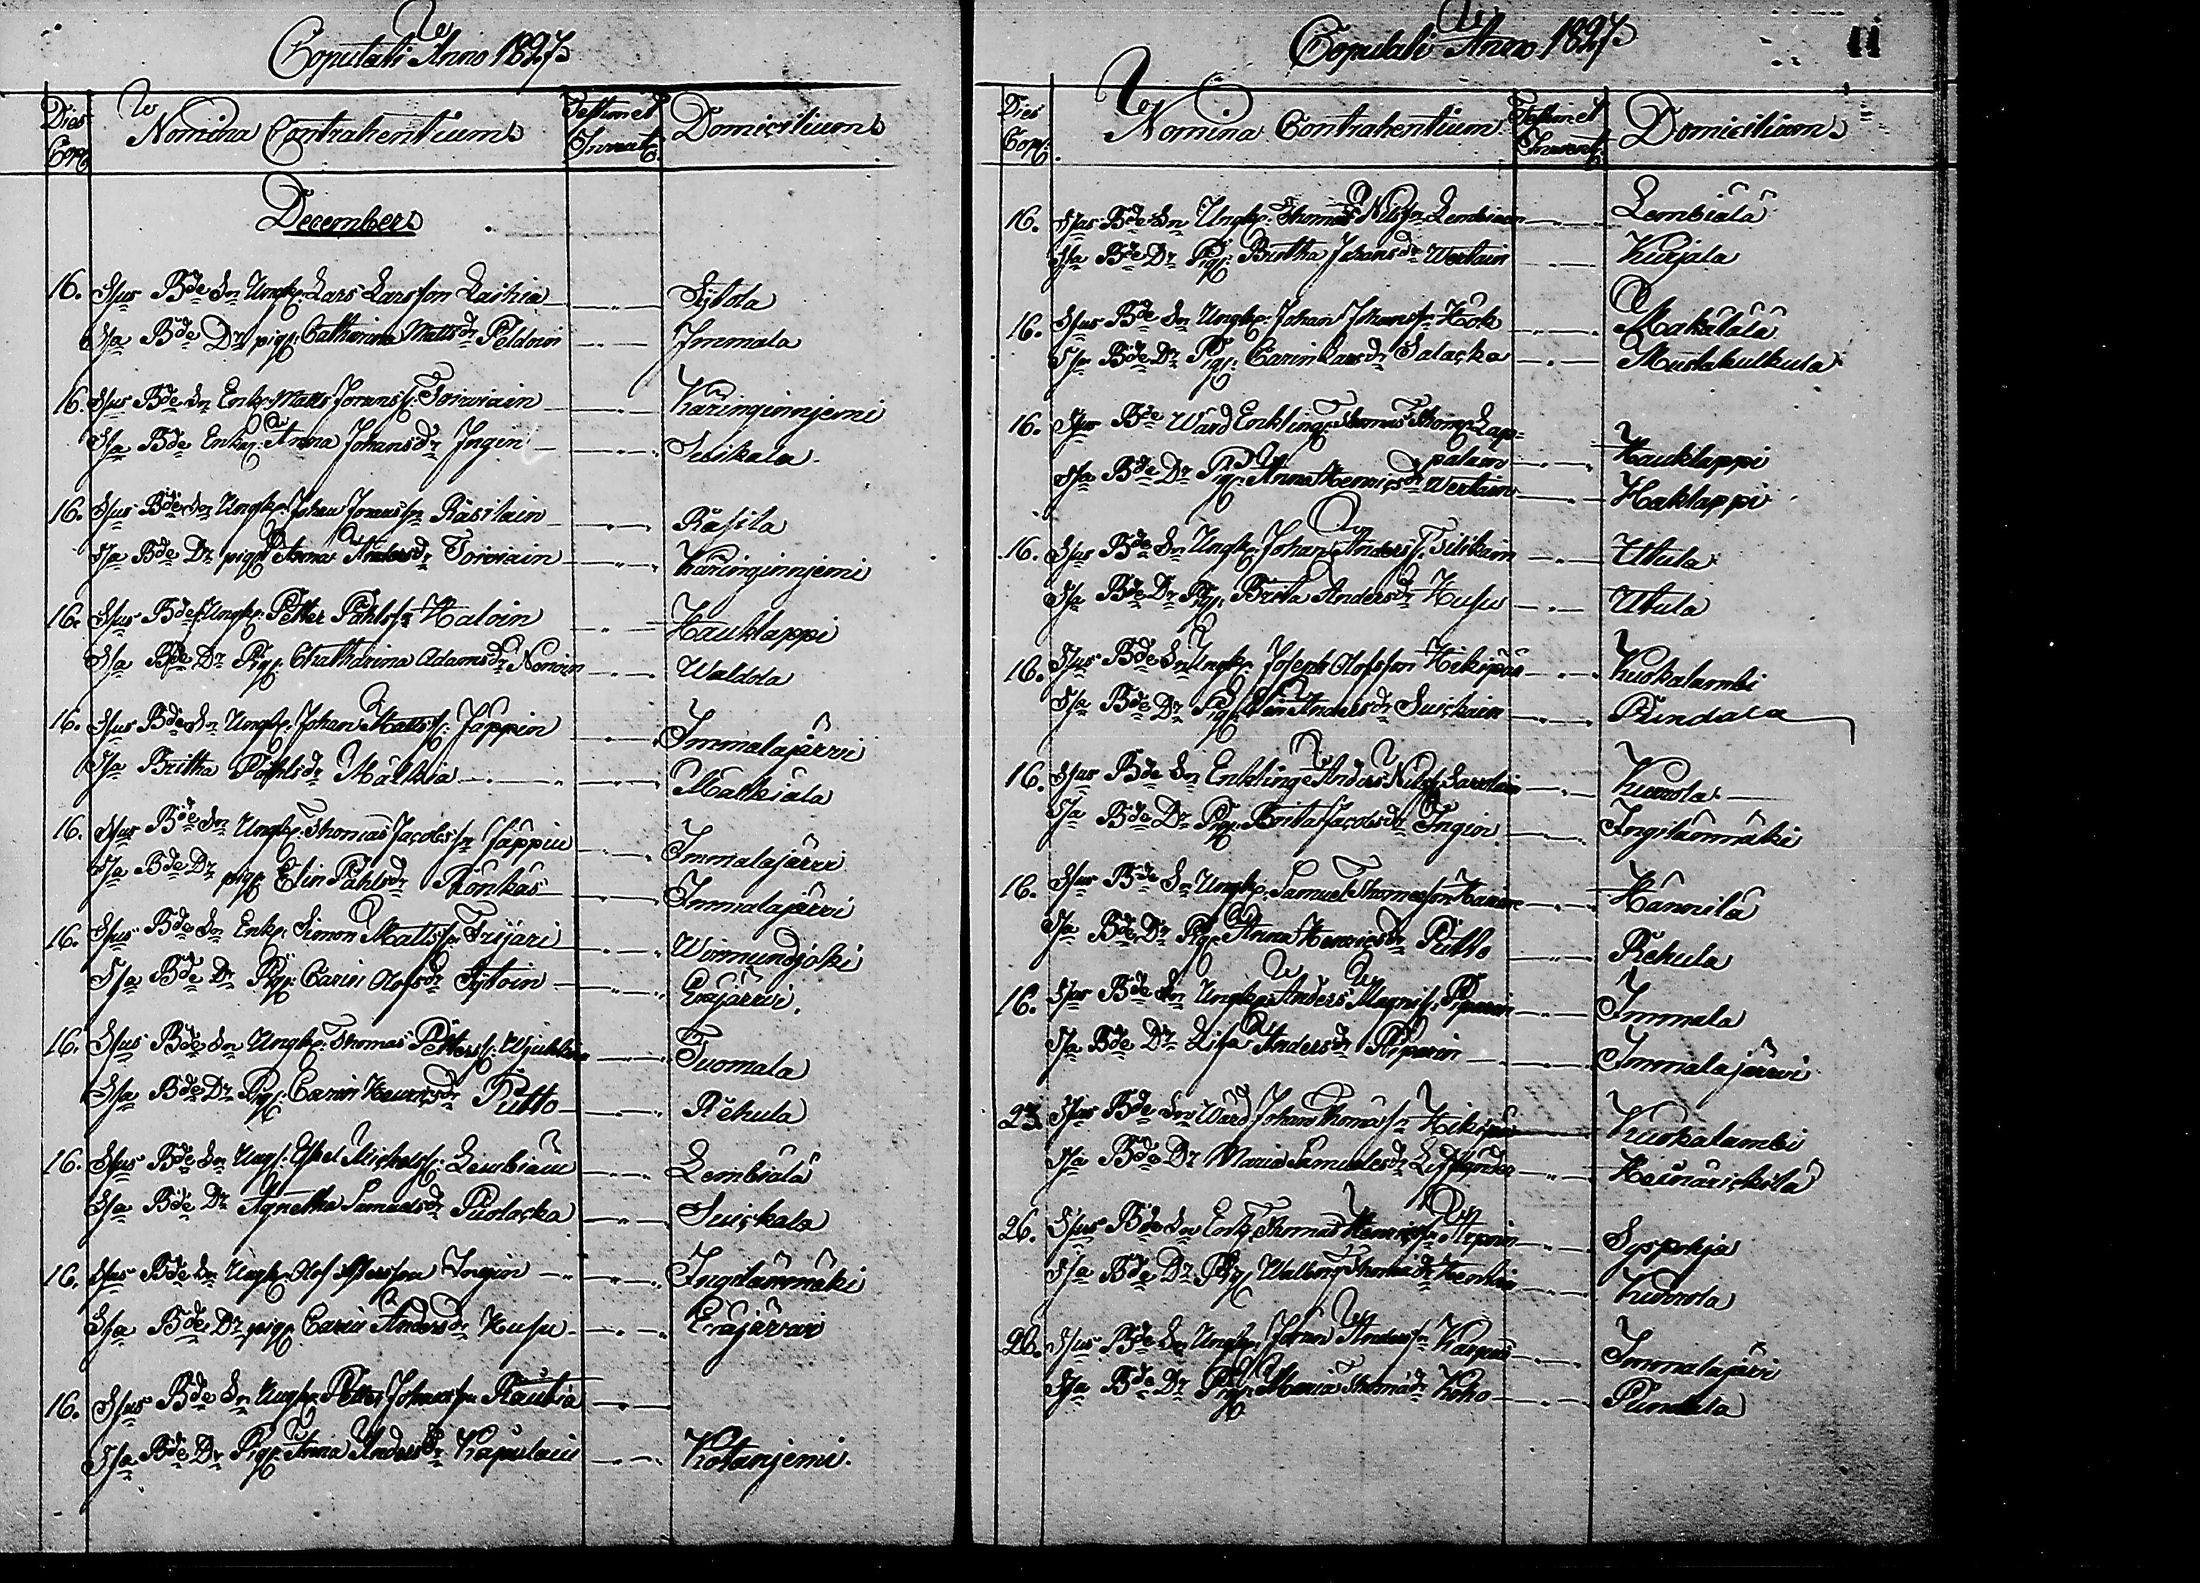 Copulati Anno 1827
Dies Cop. Nomina Contrahentium Testim et Invent. Domicilium
December
16. Spus Bde Sn Ungk. Lars Larsson Laihia Sÿtola
Spa Bde Dr pig. Catharina Mattsdr Peldoin Immala
16. Spus Bde Sn Enk. Matts Joransf. Toiviain Käringinnjemi
Spa Bde Enkan Anna Johansdr Ingin Suikala
16. Spus Bde Sn Ungk. Johan Joransfn Räsilain Räsila
Spa Bde Dr pig. Anna Andersdr Toiviain Käringinnjemi
16. Spus Bde Ungk. Petter Påhlsfn Haloin Hauklappi
Spa Bde Dr Pig. Chatharina Adamsdr Waldola
16. Spus Bde Sn Ungk. Johan Mattsf. Jäppin Immalajärvi
Spa Britha Påhlsdr Mälkiä Mälkiälä
16. Spus Bde Sn Ungk. Thomas Jacobsfn Jäppin Immalajärvi
Spa Bde Dr pig. Elin Påhlsdr Rönkäs Immalajärvi
16. Spus Bde Sn Enk. Simon Mattsfn Trijäri Wirmundjoki
Spa Bde Dr Pig. Carin Olofsdr Sÿtoin Eräjärvi.
16. Spus Bde Sn Ungk. Thomas Pettersf. Tuomala
Spa Bde Dr Pig. Carin Henricsdr Putto Rekula
16. Spus Bde Sn Ungk. Michelsf. Lembiäin Lembiälä
Spa Bde Dr Agnetha Samuelsdr Puolacka Suickala
16. Spus Bde Sn Ungk. Olof Ingin Ingiläinmäki
Spa Bde Dr pig. Carin Andersdr Husu Eräjärvi
16. Spus Bde Sn Ungk. Petter Johansfn Rautia
Spa Bde Dr Pig. Anna Andersdr Käpulain Kotanjemi.
Copulati Anno 1827
11
Dies Cop. Nomina Contrahentium Testim et Invent. Domicilium
16. Spus Bde Sn Ungk. Thomas Nilsfn Lembiäin Lembiälä
Spa Bde Dr Pig. Britha Johansdr Wertain Kurjala
16. Spus Bde Sn Ungk. Johan Johansfn Kok Makälälä
Spa Bde Dr Pig. Carin Larsdr Salacka Mustakulkula
16. Spus Bde Wärd Enkling. Thomas Thomasf. Lap=
palain Hauklappi
Spa Bde Dr Pig. Anna Henricsdr Wertain Haklappi
16. Spus Bde Sn Ungk. Johan Andersf. Tilikain Utula
Spa Bde Dr Pig. Brita Andersdr Husu Utula
16. Spus Bde Sn Ungk. Joseph Olofsson Hikipää Kuokalambi
Spa Bde Dr Pig. Elin Andersdr Suickain Pundala
16. Spus Bde Sn Enklinge Anders Nilsf. Savolain Kurrola
Spa Bde Dr Pig. Brita Jacobsdr Ingin Ingiläinmäki
16. Spus Bde Sn Ungk. Samuel Thomasson Hännilä
Spa Bde Dr Pig. Anna Henricsdr Putto Rekula
16. Spus Bde Sn Ungk. Anders Magnif. Piparin Immala
Spa Bde Dr Lisa Andersdr Piparin Immalajärvi
23. Spus Bde Sn Wärd Johan Thomasfn Hikipää Kuokalambi
Spa Bde Dr Maria Samuelsdr Heinärickilä
26. Spus Bde Sn Enk. Thomas Henricsfn Arpiin Syspohja
Spa Bde Dr Pig. Walborg Thomasdr Kurrola
26. Spus Bde Sn Ungk. Johan Andersfn Karpäs Immalajäri
Spa Bde Dr Pig. Maria Thomasdr Koho Pundala